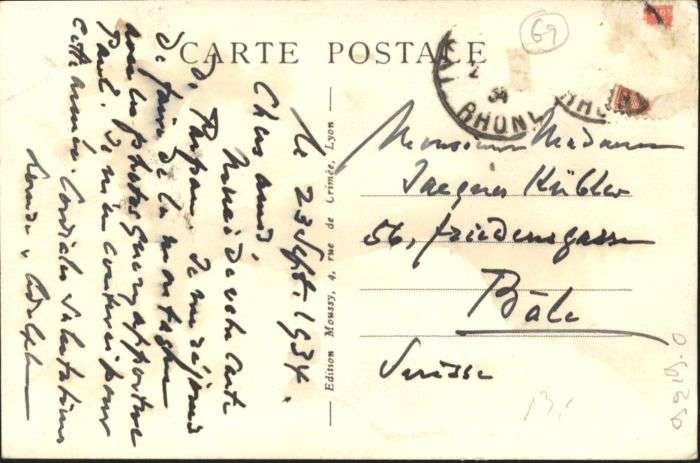 CARTE POSTALE
69
RHONE
2
34
RHONE
Le 23 Sept. 1934.
Chers amis
Merci de votre carte
de
Je me réjouis
de faire de la montagne
avec les photos que m'apportera
Paul. Je m'en contenterai pour
cette année. Cordiales Salutations
Monsieur Madame
Jacques Kübler
56, Friedensgasse
Bâle
Suisse
Edition Moussy, 4, rue de Crimée, Lyon